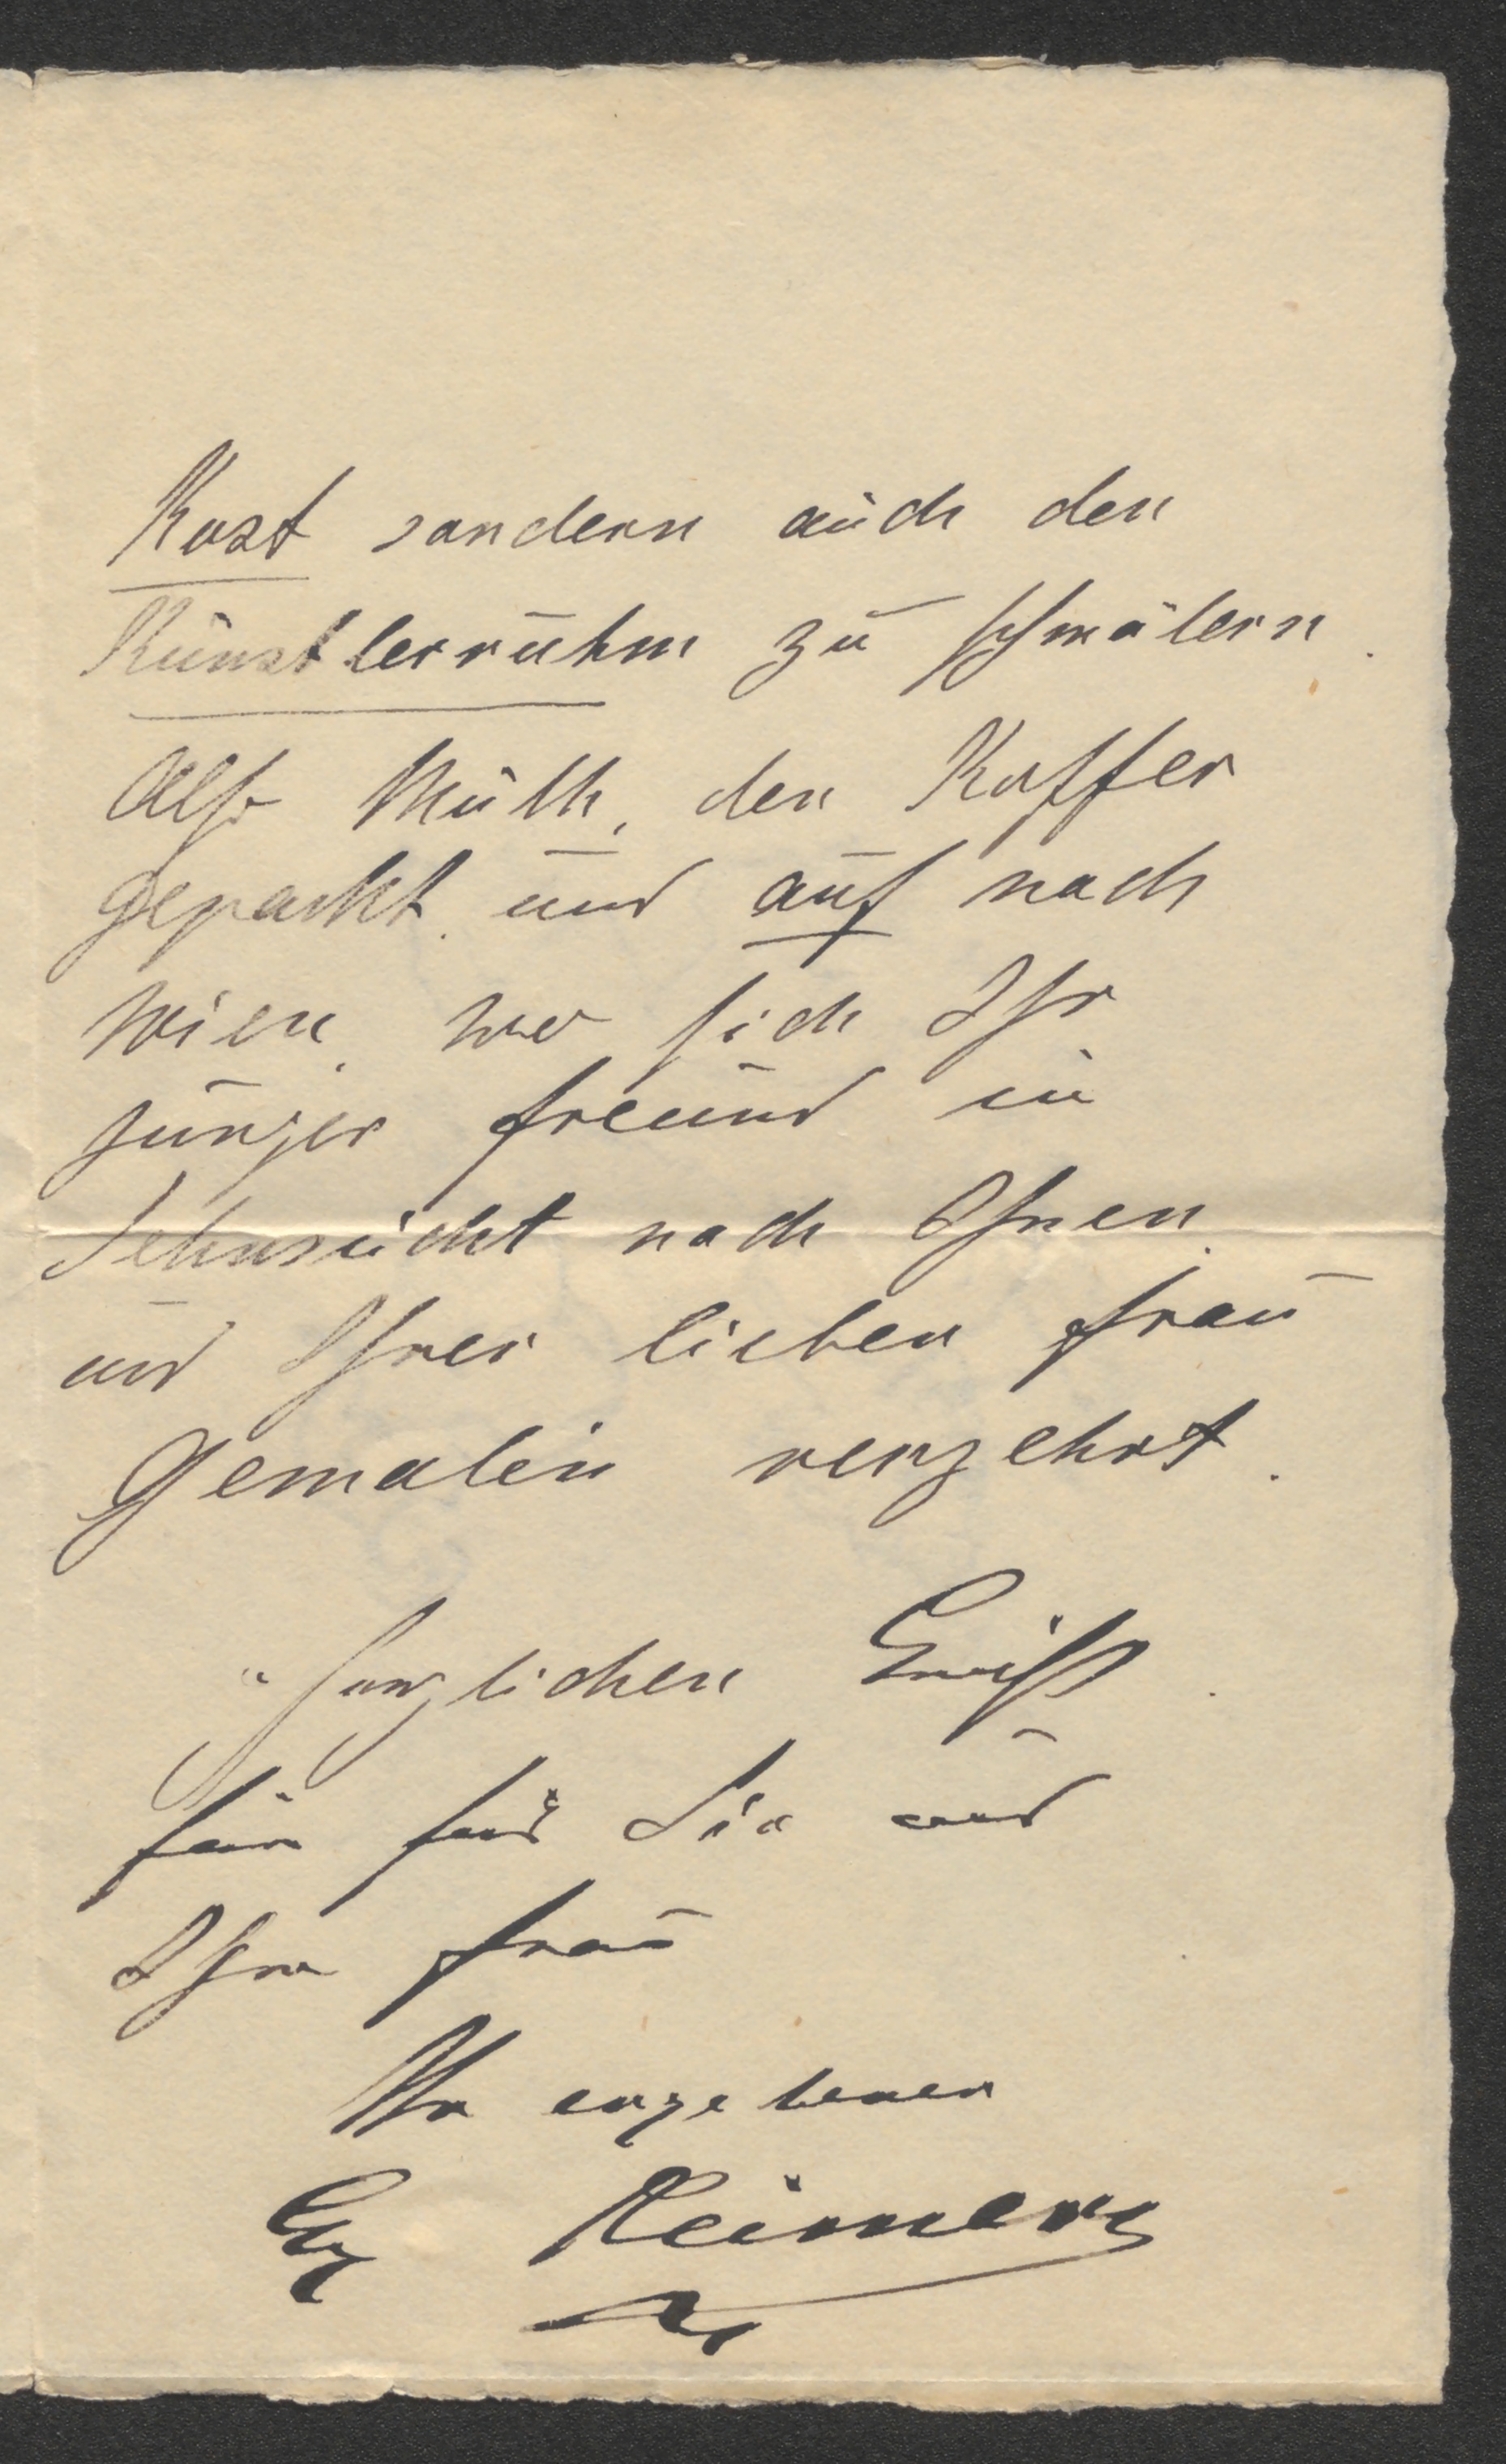 Kost sondern auch den
Künstlerruhm zu schmälern.
Also Muth, den Koffer
gepackt und auf nach
Wien, wo sich Ihr
junger Freund in
Sehnsucht nach Ihnen
und Ihrer lieben Frau
Gemalin verzehrt.
Herzlichen Gruß
für Sie und
Ihre Frau
Ihr ergebener
Gg Reimers